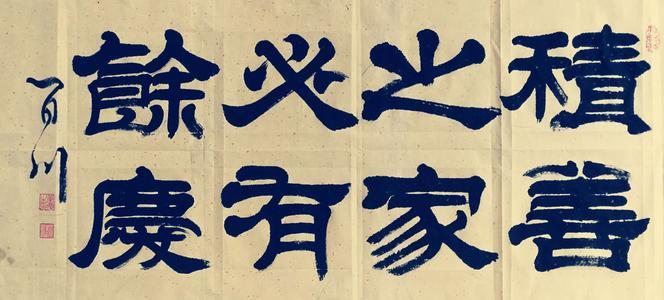 積善
之家
必有
餘慶
百川